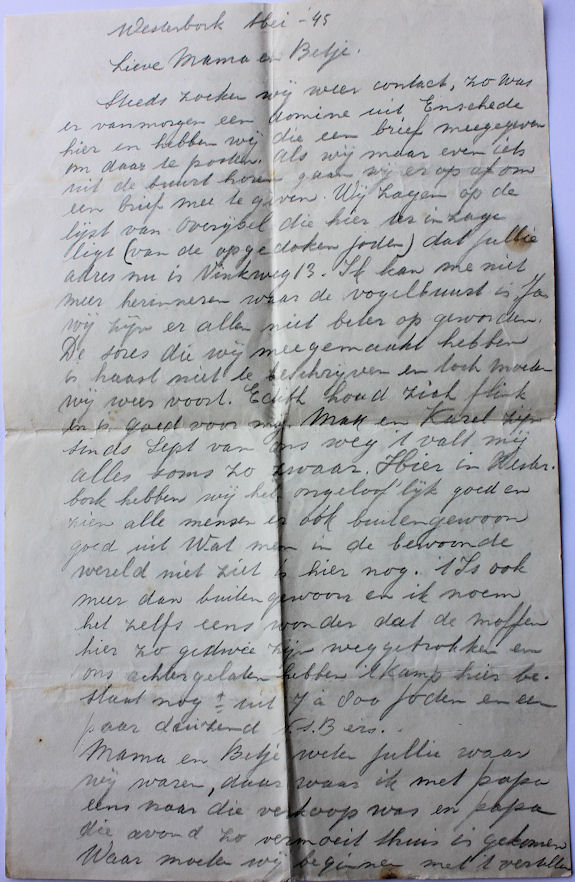 Westerbork Mei - '45
Lieve Mama en Betje.
Steeds zoeken wij weer contact, zo was
er vanmorgen een domine uit Enschede
hier en hebben wij die een brief meegegeven
om daar te posten. Als wij maar even iets
uit de buurt horen gaan wij er op af om
een brief mee te geven. Wij zagen op de
lijst van Overijsel die hier ter inzage
ligt (van de opgedoken joden) dat jullie
adres nu is Vinkweg 13. Ik kan me niet
meer herinneren waar de vogelbuurt is. Ja
wij zijn er allen niet beter op geworden.
De sores die wij meegemaakt hebben
is haast niet te beschrijven en toch moeten
wij weer voort. Edith houd zich flink
en is goed voor mij. Max en Karel zijn
sinds Sept van ons weg 't valt mij
alles soms zo zwaar. Hier in Wester-
bork hebben wij het ongeloof'lijk goed en
zien alle mensen er ook buitengewoon
goed uit Wat men in de bewoonde
wereld niet ziet is hier nog. 't Is ook
meer dan buitengewoon en ik noem
het zelfs eens wonder dat de moffen
hier zo gedwee zijn weggetrokken en
ons achtergelaten hebben 't kamp hier be-
staat nog ± uit 7 à 800 joden en een
paar duizend N.S.B ers.
Mama en Betje weten jullie waar
wij waren, daar waar ik met papa
eens naar die verkoop was en papa
die avond zo vermoeit thuis is gekomen
Waar moeten wij beginnen met 't vertellen